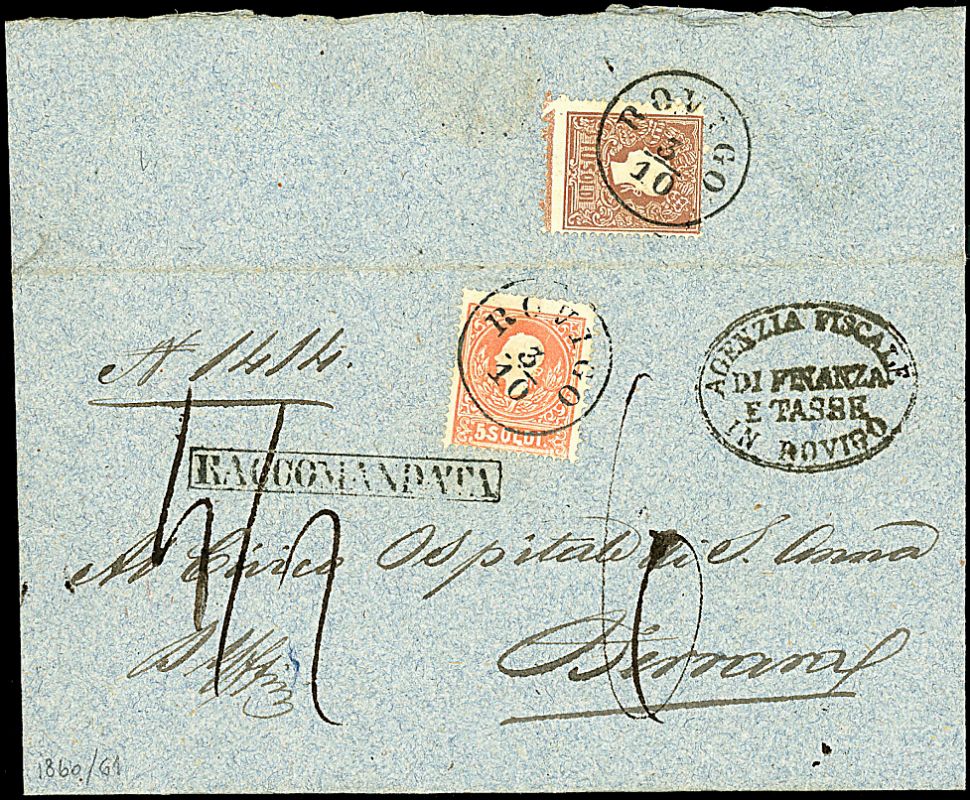 ROVIGO
3/10
10 SOLDI
ROVIGO
3/10
5 SOLDI
N. 1414.
AGENZIA FISCALE
DI FINANZA
E TASSE
IN ROVIGO
RACCOMANDATA
Al Civico Ospitale di S. Anna
Ferrara
1860/61